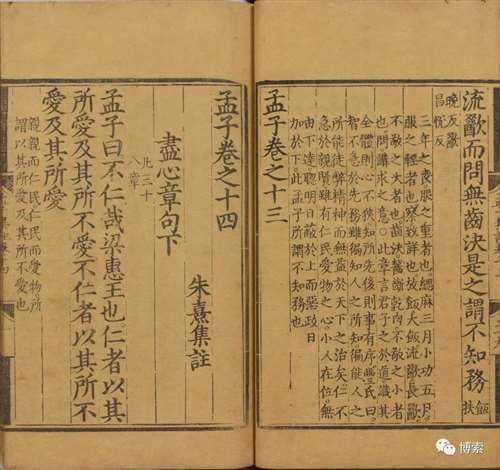 流歠而問無齒決是之謂不知務飯扶
晚反歠
昌悅反
三年之喪服之重者也緦麻三月小功五月
服之輕者也察致詳也放飯大飯流歠長歠
不敬之大者也齒決齧斷乾肉不敬之小者
也問講求之意○此章言君子之於道識其
全體則心不狹知所先後則事有序豐氏曰
智不急於先務雖徧知人之所知徧能人之
所能徒弊精神而無益於天下之治矣仁不
急於親賢雖有仁民愛物之心小人在位無
由下達聰明日蔽於上而惡政日
加於下此孟子所謂不知務也
孟子卷之十三
孟子卷之十四
盡心章句下
凡三十
八章
朱熹集註
孟子曰不仁哉梁惠王也仁者以其
所愛及其所不愛不仁者以其所不
愛及其所愛
親親而仁民仁民而愛物所
謂以其所愛及其所不愛也
博索